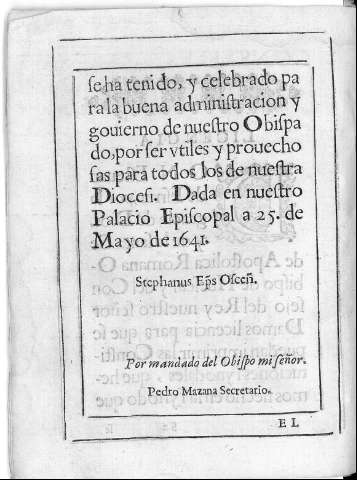 se ha tenido, y celebrado pa
ra la buena administracion y
gouierno de nuestro Obispa
do, por ser vtiles y prouecho
sas para todos los de nuestra
Diocesi. Dada en nuestro
Palacio Episcopal a 25. de
Mayo de 1641.
Stephanus Ep̃s Oscen̄.
Por mandado del Obispo mi señor.
Pedro Mazana Secretario.
EL